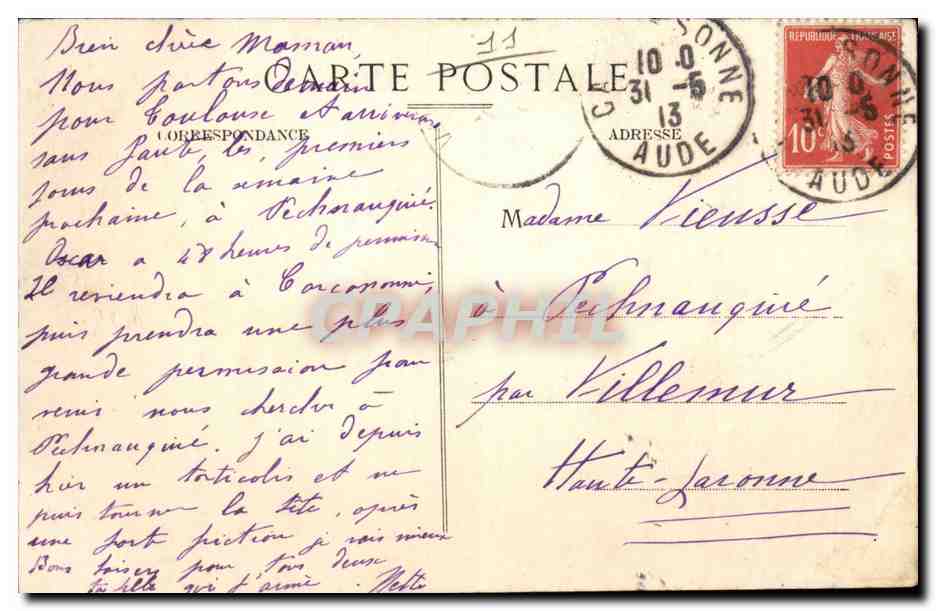 11
CARTE POSTALE
CORRESPONDANCE
ADRESSE
RÉPUBLIQUE FRANÇAISE
10c
POSTES
SONNE
10 0
31 -5
13
AUDE
Bien chère Maman
Nous partons demain
pour Toulouse et arriverons
sans faute, les premiers
jours de la semaine
prochaine, à Pechnauquié.
Oscar a 48 heures de permission
Il reviendra à Carcassonne,
puis prendra une plus
grande permission pour
venir nous chercher à
Pechnauquié. J'ai depuis
hier un torticolis et ne
puis tourner la tête, après
une forte friction je vais mieux
Bons baisers pour tous deux
ta fille qui t'aime.
Madame Vieusse
à Pechnauquié
par Villemur
Haute-Garonne
CPAPHIL